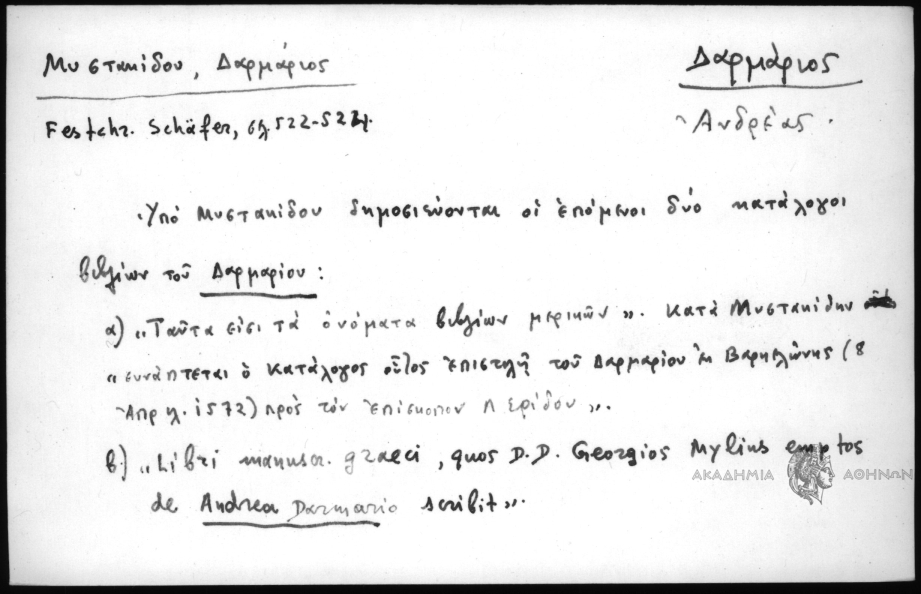 Μυστακίδου, Δαρμάριος
Δαρμάριος
Ἀνδρέας.
Festchr. Schäfer, σλ. 522-527.
Ὑπό Μυστακίδου δημοσιεύονται οἱ ἑπόμενοι δύο κατάλογοι
βιβλίων τοῦ Δαρμαρίου:
α) «Ταῦτα εἰσι τά ὀνόματα βιβλίων μερικῶν». Κατά Μυστακίδην
«συνάπτεται ὁ κατάλογος οὗτος ἐπιστολῇ τοῦ Δαρμαρίου ἐκ Βαρκελώνης (8
Ἀπρλ. 1572) πρὸς τὸν ἐπίσκοπον Λερίδου».
β) «Libri manuscr. graeci, quos D.D. Georgios Mylius emptos
de Andrea Darmario scribit».
ΑΚΑΔΗΜΙΑ ΑΘΗΝΩΝ